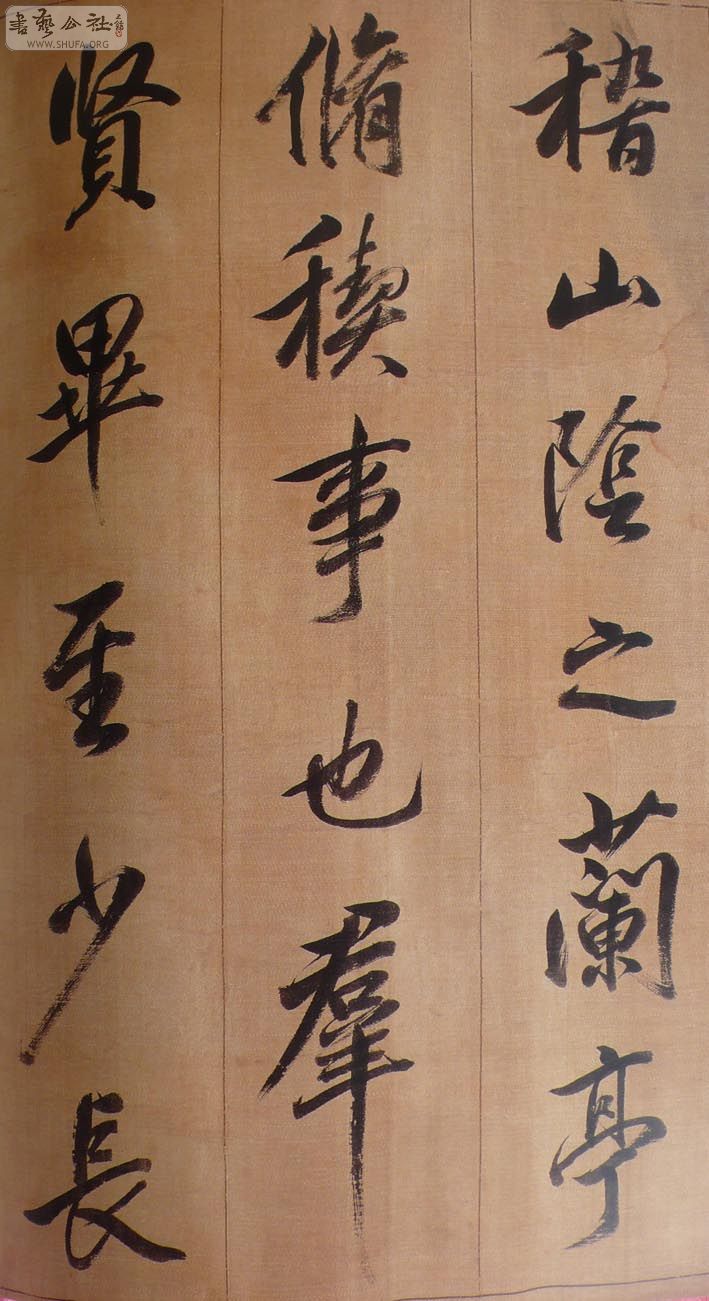 稽山陰之蘭亭
脩稧事也羣
賢畢至少長
書藝公社
WWW.SHUFA.ORG